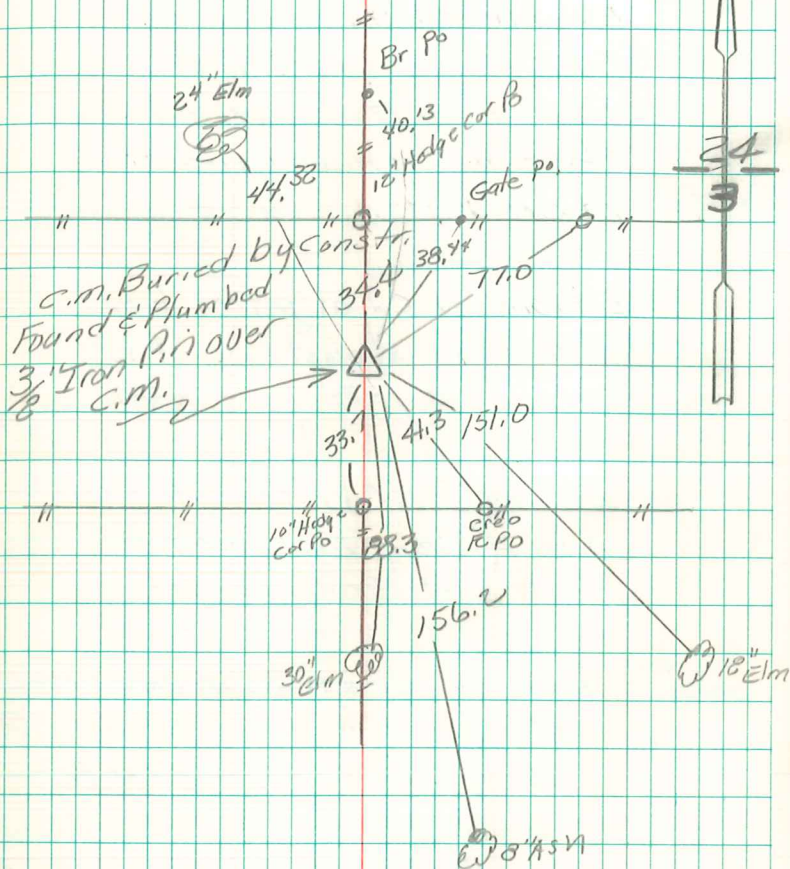 Br Po
24" Elm
40.13
12" Hedge cor Po
24
3
44.32
Gate Po.
C.M. Buried by Constr.
Found & Plumbed
3/8" Iron Pin over
C.M.
34.4
38.44
77.0
33.7
41.3
151.0
10" Hedge
Cor Po
Creo
Po
88.3
156.2
30"
Elm
18" Elm
8" Ash